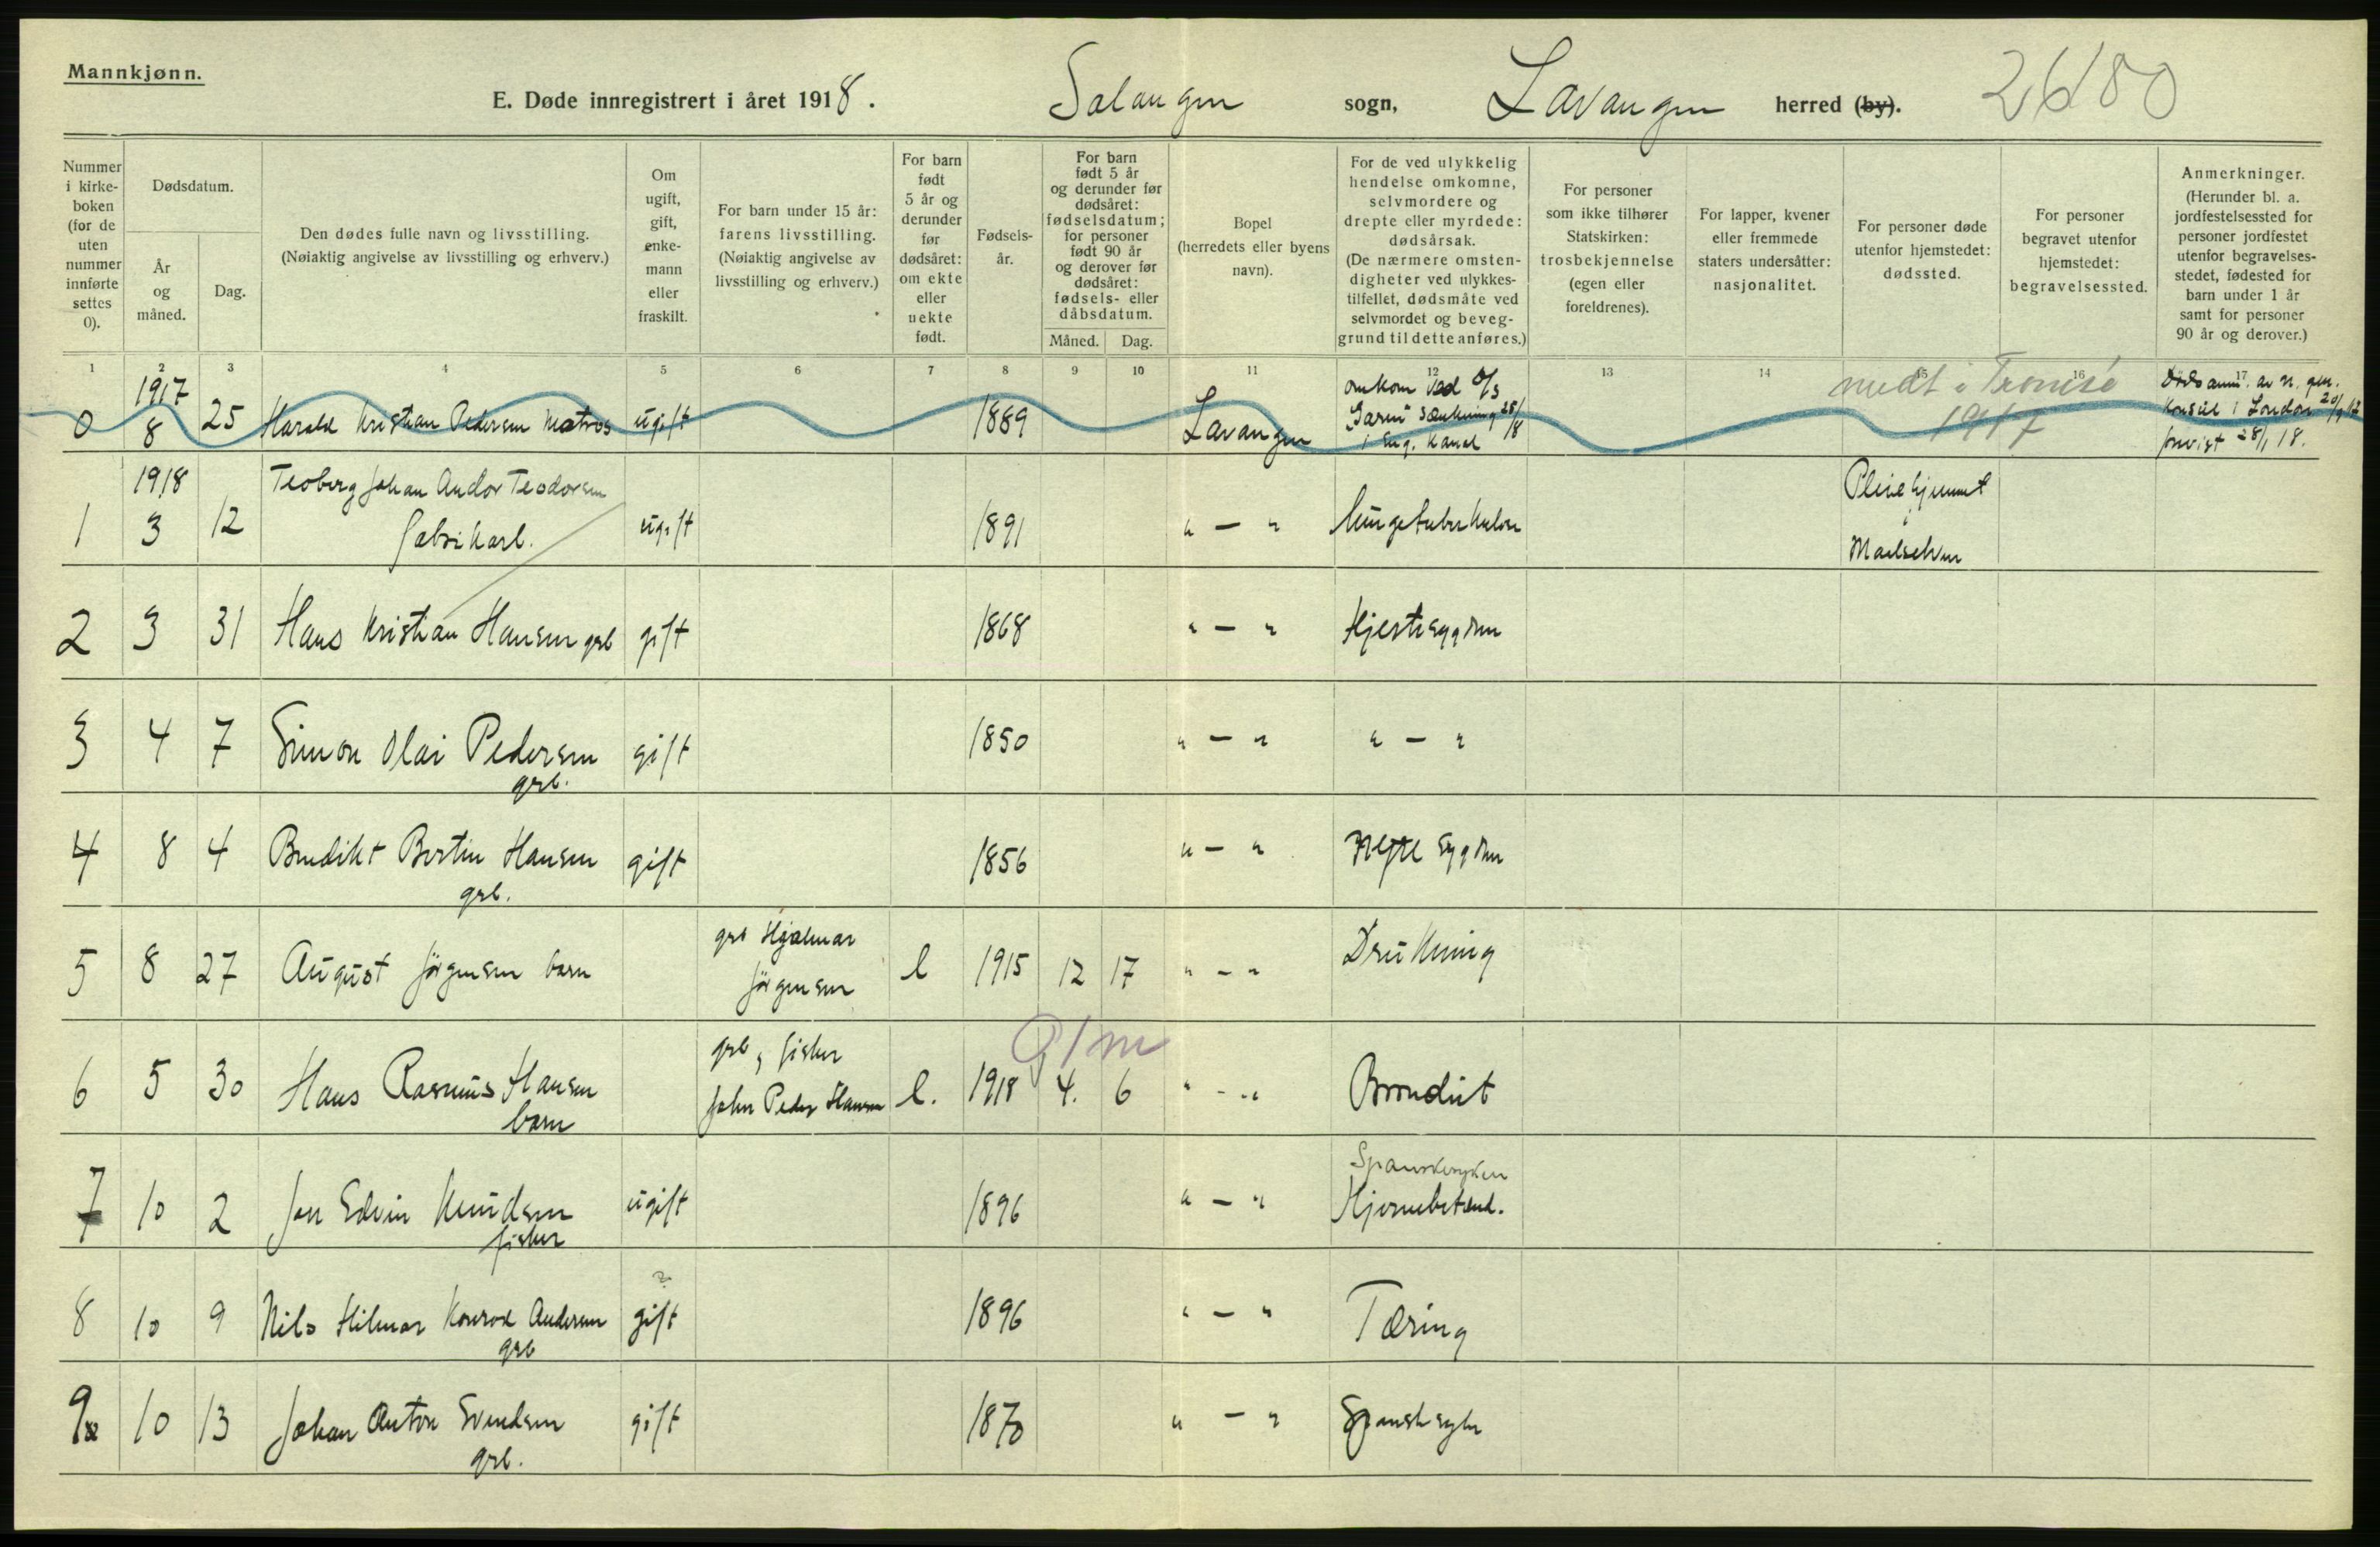 Mannkjønn.
E. Døde innregistrert i året 1918. Salangen sogn, Lavangen herred (by). 26180
Nummer i kirke-boken (for de uten nummer innførte settes 0).
Dødsdatum.
År og måned.
Dag.
Den dødes fulle navn og livsstilling.
(Nøiaktig angivelse av livsstilling og erhverv.)
Om ugift, gift, enke-mann eller fraskilt.
For barn under 15 år: farens livsstilling. (Nøiaktig angivelse av livsstilling og erhverv.)
For barn født 5 år og derunder før dødsåret: om ekte eller uekte født.
Fødsels-år.
For barn født 5 år og derunder før dødsåret: fødselsdatum; for personer født 90 år og derover før dødsåret: fødsels- eller dåbsdatum.
Måned. Dag.
Bopel (herredets eller byens navn).
For de ved ulykkelig hendelse omkomne, selvmordere og drepte eller myrdede: dødsårsak. (De nærmere omsten-digheter ved ulykkes-tilfellet, dødsmåte ved selvmordet og beveg-grund til dette anføres.)
For personer som ikke tilhører Statskirken: trosbekjennelse (egen eller foreldrenes).
For lapper, kvener eller fremmede staters undersåtter: nasjonalitet.
For personer døde utenfor hjemstedet: dødssted.
For personer begravet utenfor hjemstedet: begravelsessted.
Anmerkninger. (Herunder bl. a. jordfestelsessted for personer jordfestet utenfor begravelses-stedet, fødested for barn under 1 år samt for personer 90 år og derover.)
1 2 3 4 5 6 7 8 9 10 11 12 13 14 15 16 17
0 1917 8 25 Harald Kristian Pedersen Matros ugift 1889 Lavangen omkom ved D/S "Garm" Sænkning 25/8 i Eng. Kanal medt i Tromsö 1917 Dødsanm. av n. gen. Konsul i London 20/9 17 28/1 18.
1 1918 3 12 Teoberg Johan Andor Teodorsen fabrikarb. ugift 1891 " — " Lungetuberkulose Pleiehjemmet i Maalselven
2 3 31 Hans Kristian Hansen grb gift 1868 " — " Hjertesygdm
3 4 7 Simon Olai Pedersen grb. gift 1850 " — " " — "
4 8 4 Bendikt Bertin Hansen grb. gift 1856 " — " sygdm
5 8 27 August Jörgensen barn grb Hjalmar Jörgensen l 1915 12 17 " - " Drukning
6 5 30 Hans Rasmus Hansen barn grb, fisker John Peder Hansen l. 1918 4. 6 " - " 1 m
7 10 2 Jon Edvin Knudsen fisker ugift 1896 " — " Spanskesyken Hjernebetænd.
8 10 9 Nils Hilmar Konrad Andersen grb ? gift 1896 " — " Tæring
9 10 13 Johan Anton Svendsen grb. gift 1870 " — " Spansksyke